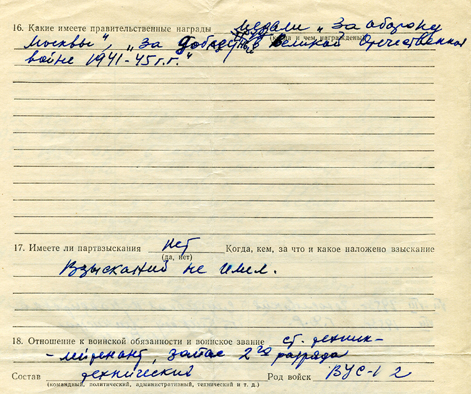 16. Какие имеете правительственные награды медали „За оборону
(когда и чем награждены)
Москвы", „за победу в Великой Отечественной
войне 1941-45 г.г."
17. Имеете ли партвзыскания нет Когда, кем, за что и какое наложено взыскание
(да, нет)
Взысканий не имел.
18. Отношение к воинской обязанности и воинское звание ст. техник-
-лейтенант, запас 2го разряда
Состав технический Род войск ВУС-1 2
(командный, политический, административный, технический и т. д.)